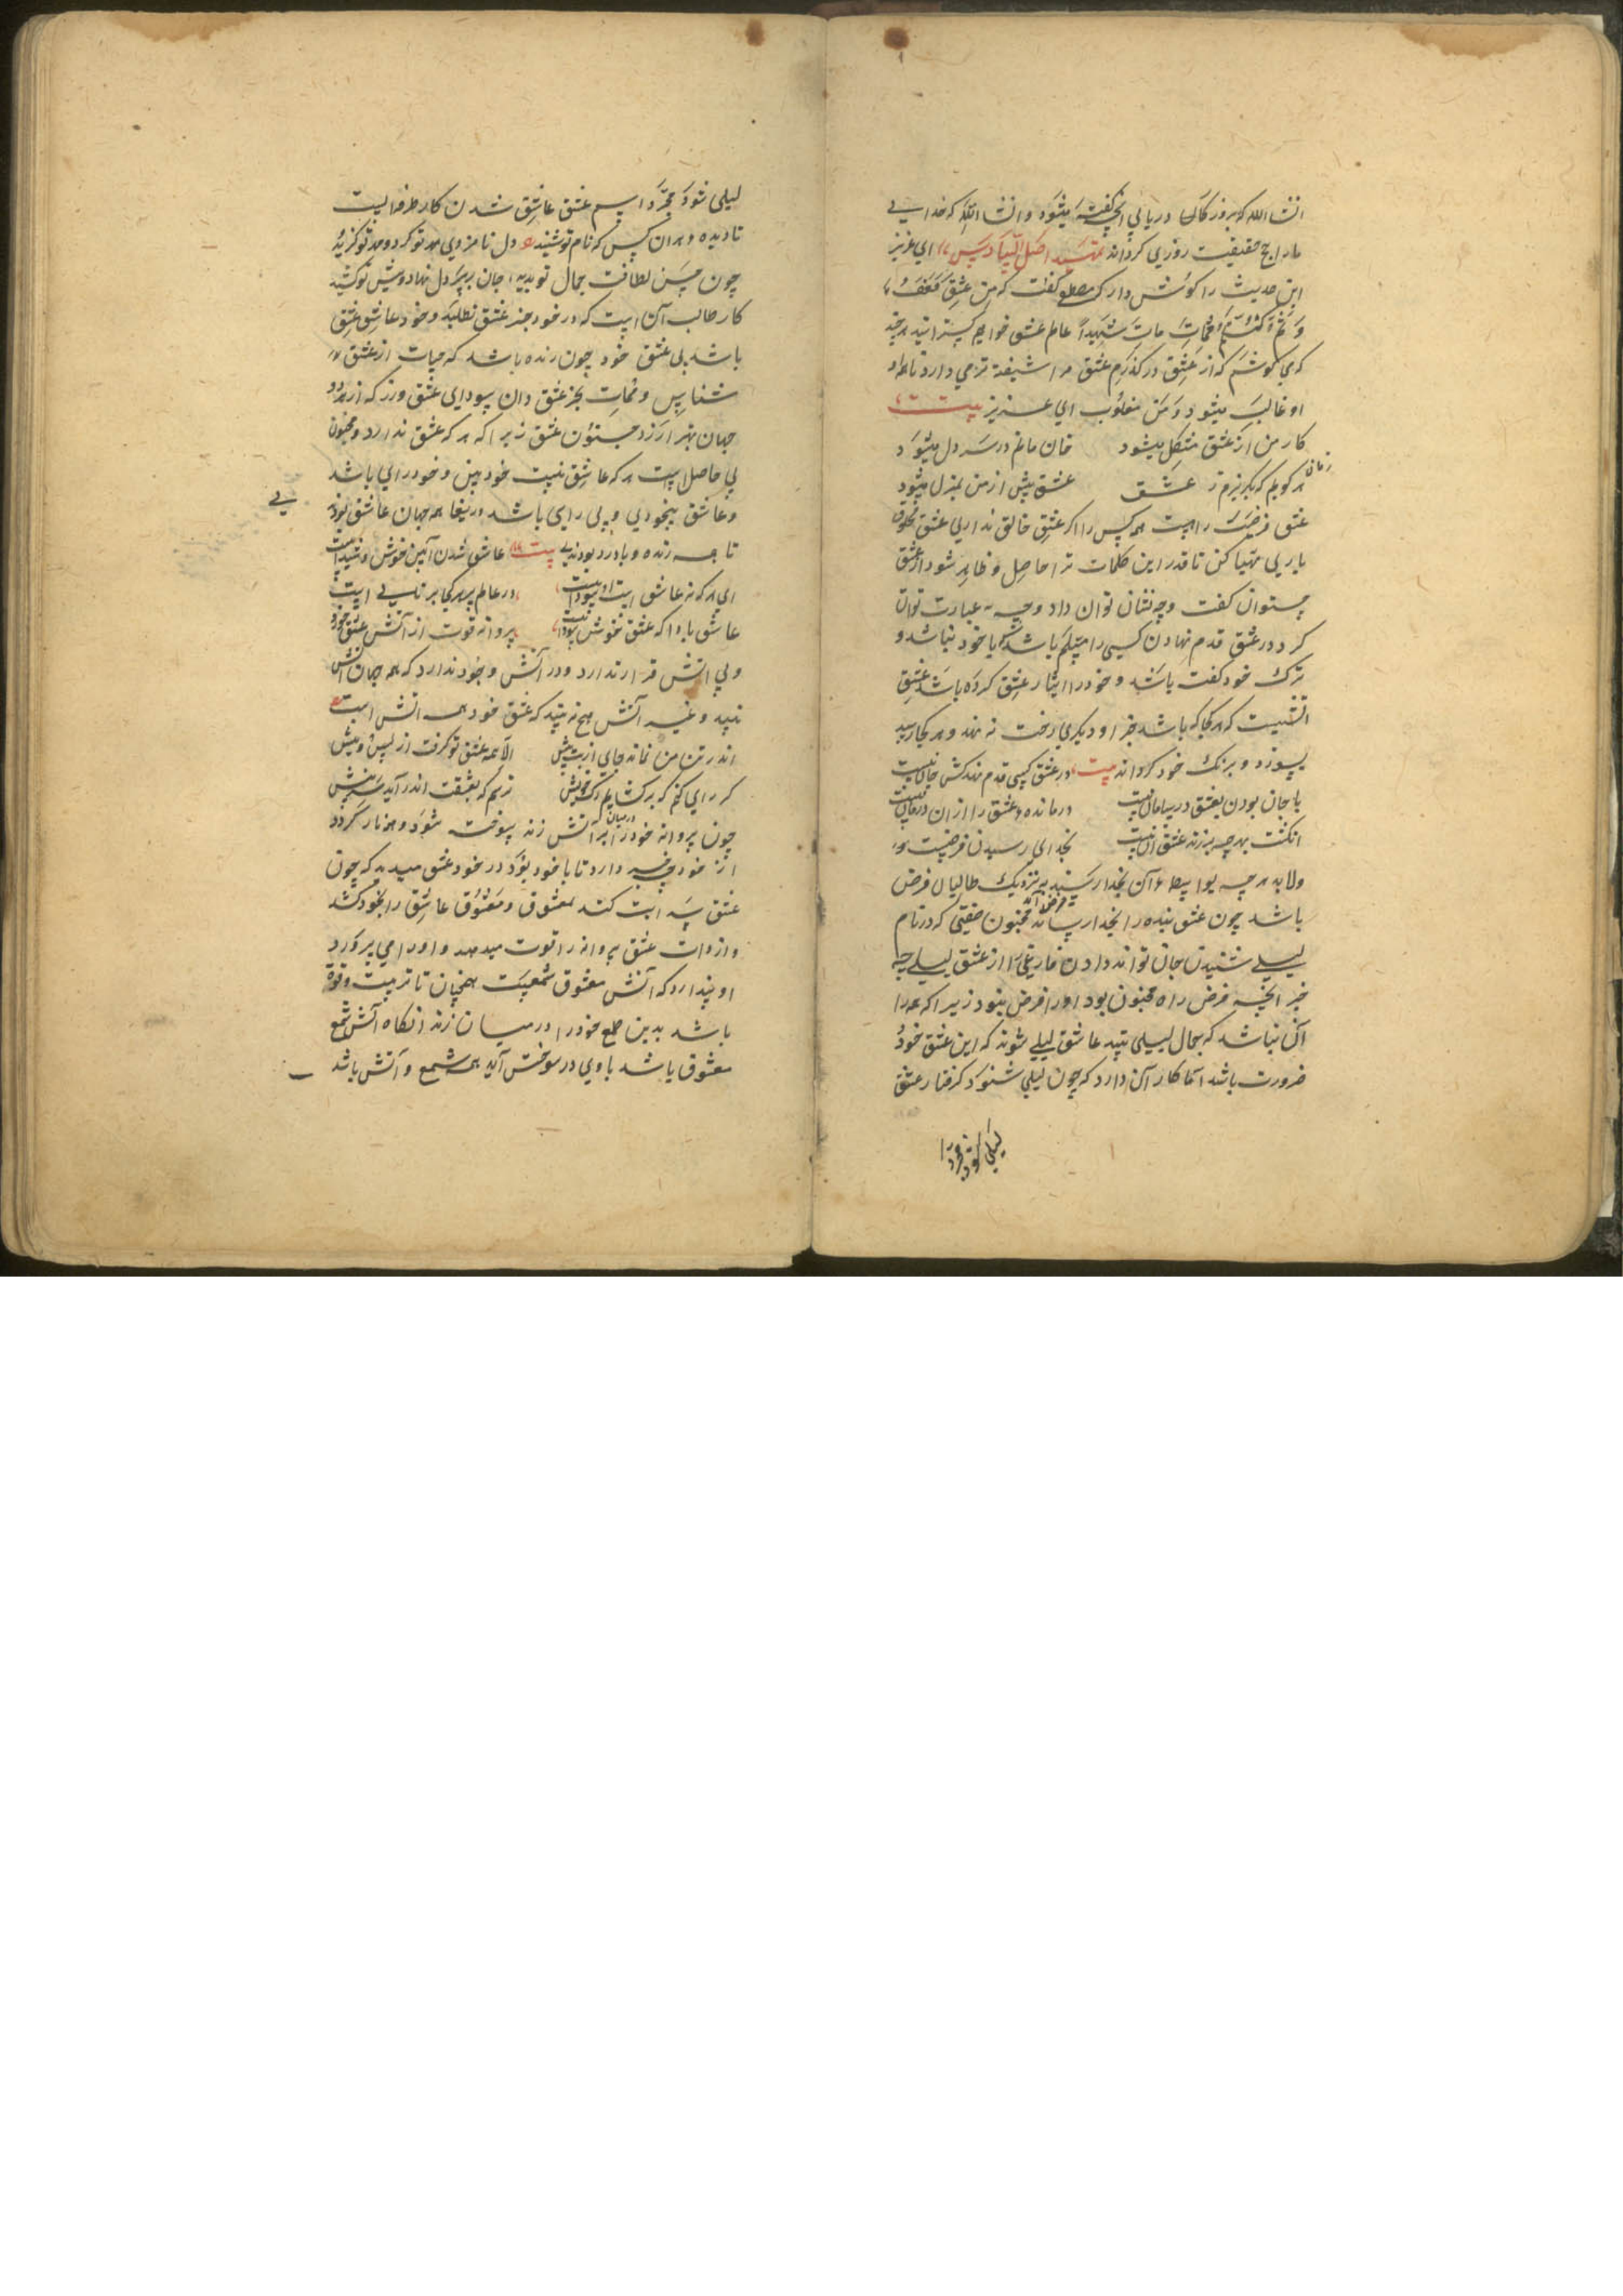 انشا الله که بروز کار دریابی انچ گفته میشود و انشا الله که خدایی
مارا حج حقیقیت روزی کرداند تمهید اصل السادس ای عزیز
این حدیث را کوش دار که مصطفی کفت که من عشق فعف
و ثم کتم فمات مات شهیداً عالم عشق خواهم کسترانید هر چند
که می کوشم که از عشق در کذرم عشق مرا شیفته تر می دارد تا هم او
او غالب میشود و من مغلوب ای عزیز بیت
کار من از عشق مشکل میشود خان مانم در سر دل میشود
هر زمان کویم که بکریزم ز عشق عشق پیش از من بمنزل میشود
عشق فرض راهست همه کس را اکر عشق خالق نداری عشق مخلوق
باری مهیا کن تا قدر این کلمات ترا حاصل و ظاهر شود از عشق
چتوان کفت و چه نشان توان داد و چه عبارت توان
کرد در عشق قدم نهادن کسی را مسلم باشد که با خود نباشد و
ترک خود کفت باشد و خود را ایثار عشق کرده باشد عشق
اتشیست که هر کجا که باشد جز او دیکری رخت نه نهد و هر کجا رسد
بسوزد و برنک خود کرداند بیت در عشق کسی قدم نهد کش جان نیست
با جان بودن بعشق در سامان نیست درمانده عشق را از ان درمان نیست
انکشت بهر چه بر زنه عشق ان نیست بخدای رسیدن فرضست و
ولابد هر چه بواسطه آن بخدا رسند به نزدیک طالبان فرض
باشد چون عشق بنده را بخدا رساند فرض آمد مجنون صفتی که در نام
لیلی شنیدن جان تواند دادن فارغی را از عشق لیلی چه
خبر انچه فرض راه مجنون بود اورا فرض نبود زیرا که همه را
آن نباشد که بجمال لیلی بیند عاشق لیلی شوند که این عشق خود
ضرورت باشد اما کار آن دارد که چون لیلی شنود کرفتار عشق
لیلی شود
لیلی شود مجرد اسم عشق عاشق شدن کار طرفه ایست
نادیده هر ان کس که نام تو شنید دل نامزدی مهر تو کرد و مهر تو کزید
چون حسن لطافت جمال تو بدید جان بر سر دل نهاد و پیش تو کشید
کار طالب آن است که در خود جز عشق نطلبد و خود عاشق عشق
باشد بی عشق خود چون زنده باشد که حیات از عشق
شناس و ممات بجز عشق دان سودای عشق ورز که از هر دو
جهان بهتر ارزد جنون عشق زیرا که هر که عشق ندارد و مجنون
بی حاصل است هر که عاشق نیست خود بین و خود رای باشد
و عاشق بیخودی و بی رای باشد دریغا همه جهان عاشق بودندی
تا همه زنده و بادرد بودندی بیت عاشق شدن آیین خوش و شیدا ایست
ای هر که نه عاشق است او نیست در عالم پیر هر کجا بر نایی ایست
عاشق بادا که عشق خوش سودا ایست پروانه قوت از آتش عشق خورد
و بی اتش قرار ندارد و در آتش وجود ندارد که همه جهان آتش
بیند و غیر آتش هیچ نه بیند که عشق خود همه اتش است
اندر تن من نماند جایی از بت بیش الا همه عشق تو کرفت از پس و پیش
کر رای کنم که بر کشایم رک خویش ترسم که بعشقت اندر آید سر نیش
چون پروانه خود را بر میان اتش زند سوخته شود و همه نار کردد
از خود چه خبر دارد تا با خود بود در خود عشق میدید که چون
عشق سرایت کند معشوق و معشوق عاشق را بخود کشد
و از ذات عشق پروانه را قوت میدهد و اورا می پرورد
او پندارد که آتش معشوق شمعیست همچنان تا تربیت و قوة
باشد بدین طمع خود را در میان زند انکاه آتش شمع
معشوق باشد با وی در سوختن آید همه شمع و آتش باشد